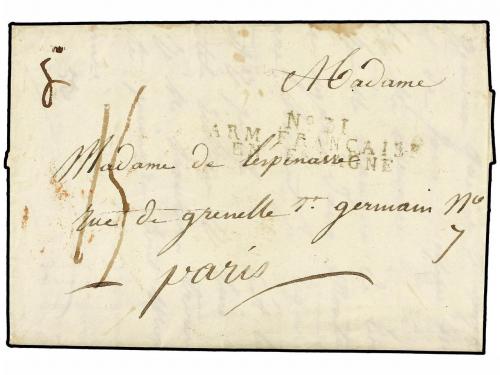 Madame
No 31
ARM. FRANÇAISE
EN ESPAGNE
Madame de Lespinasse
rue de grenelle St germain No
7
15
paris